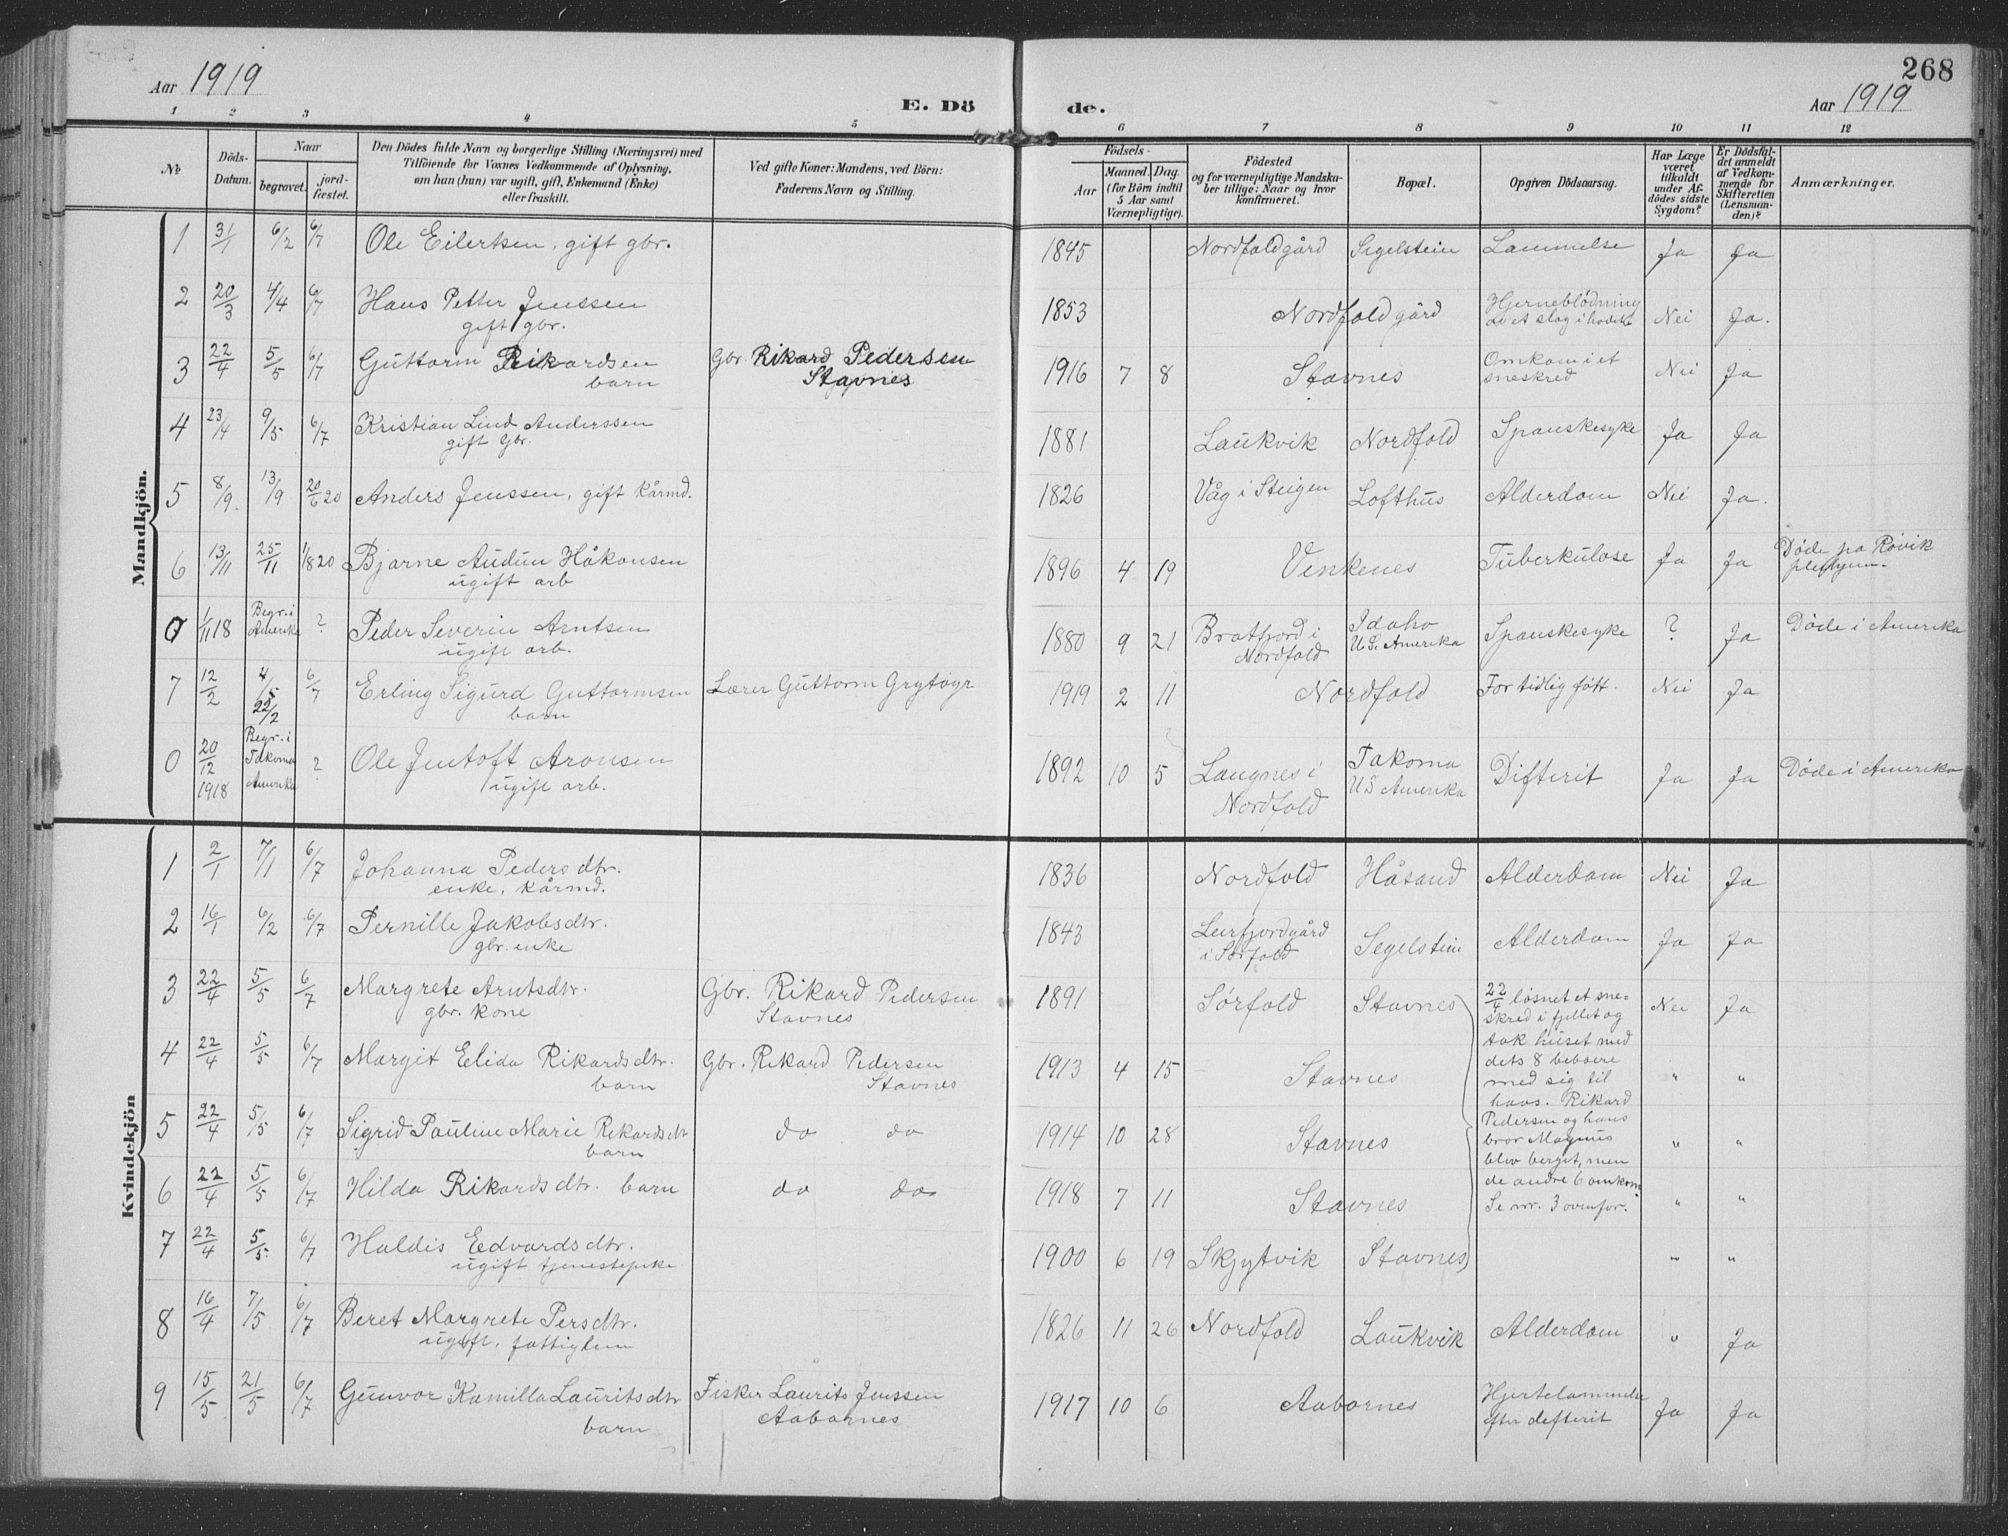 268
Aar 1919
E. Dö de.
Aar 1919
1 2 3 4 5 6 7 8 9 10 11 12
No
Döds-Datum.
Naar
begravet.
jord-fæstet.
Den Dödes fulde Navn og borgerlige Stilling (Næringsvei) med
Tilföiende for Voxnes Vedkommende af Oplysning,
om han (hun) var ugift, gift, Enkemand (Enke)
eller fraskilt.
Ved gifte Koner: Mandens, ved Börn:
Faderens Navn og Stilling.
Födsels-
Aar
Maaned. Dag.
(for Börn indtil
5 Aar samt
Værnepligtige).
Födested
og for værnepligtige Mandska-
ber tillige: Naar og hvor
konfirmeret.
Bopæl.
Opgiven Dödsaarsag.
Har Læge
været
tilkaldt
under Af-
dödes sidste
Sygdom?
Er Dödsfal-
det anmeldt
af Vedkom-
mende for
Skifteretten
(Lensman-
den)?
Anmærkninger.
Mandkjön.
1 31/1 6/2 6/7 Ole Eilertsen, gift gbr. 1845 Nordfoldgård Segelstein Lammelse Ja Ja
2 20/3 4/4 6/7 Hans Petter Jenssen
gift gbr. 1853 Nordfoldgård Hjerneblödning
av et slag i hodet Nei Ja.
3 22/4 5/5 6/7 Guttorm Rikardsen
barn Gbr. Rikard Pedersen
Stavnes 1916 7 8 Stavnes Omkom i et
sneskred Nei Ja
4 23/4 9/5 6/7 Kristian Lind Anderssen
gift Gbr. 1881 Laukvik Nordfold Spanskesyke Ja Ja
5 8/9. 13/9 20/6 20 Anders Jenssen, gift kårmd. 1826 Våg i Steigen Lofthus Alderdom Nei Ja.
6 13/11 25/11 1/8 20 Bjarne Audun Håkonsen
ugift arb 1896 4 19 Venkenes Tuberkulose Ja Ja Döde på Røvik
0 1/11 18 Begr. i
Amerika ? Peder Severin Arntsen
ugift arb. 1880 9 21 Bratfjord i
Nordfold Idaho
U.S. Amerika Spanskesyke ? Ja Döde i Amerika
7 12/2 4/5
22/2 6/7 Erling Sigurd Guttormsen
barn Lærer Guttorm Grytöyr 1919 2 11 Nordfold For tidlig fött. Nei Ja
0 20/12
1918 Begr. i
Takoma
Amerika ? Ole Jentoft Aronsen
ugift arb. 1892 10 5 Langnes i
Nordfold Takoma
U S Amerika Difterit Ja Ja Döde i Amerika
Kvindekjön
1 2/1 7/1 6/7 Johanna Pedersdtr.
enke, kårmd. 1836 Nordfold Håsand Alderdom Nei Ja
2 16/1 6/2 6/7 Pernille Jakobsdtr.
gbr. enke 1843 Leirfjordgård
i Sörfold Segelstein Alderdom Ja Ja
3 22/4 5/5 6/7 Margrete Arntsdtr.
gbr. kone Gbr. Rikard Pedersen
Stavnes 1891 Sörfold Stavnes 22/4 løsnet et sne-
skred i fjellet og
tok huset med
dets 8 beboere
med sig til
havs. Rikard
Pedersen og hans
bror Magnus
blev berget, men
de andre 6 omkom
Se nr. 3 ovenfor. Nei Ja
4 22/4 5/5 6/7 Margit Elida Rikardsdtr.
barn Gbr. Rikard Pedersen
Stavnes 1913 4 15 Stavnes " "
5 22/4 5/5 6/7 Sigrid Pauline Marie Rikardsdtr
barn do do 1914 10 28 Stavnes " "
6 22/4 5/5 6/7 Hilda Rikardsdtr. barn do do 1918 7 11 Stavnes " "
7 22/4 5/5. 6/7 Haldis Edvardsdtr.
ugift tjenestepike 1900 6 19 Skjytvik Stavnes " "
8 16/4 7/5 6/7 Beret Margrete Persdtr.
ugift, fattiglem 1826 11 26 Nordfold Laukvik Alderdom " Ja
9 15/5 21/5 6/7 Gunvor Kamilla Lauritsdtr
barn Fisker Laurits Jenssen
Aabornes 1917 10 6 Aabornes Hjertelammelse
efter defterit Ja Ja